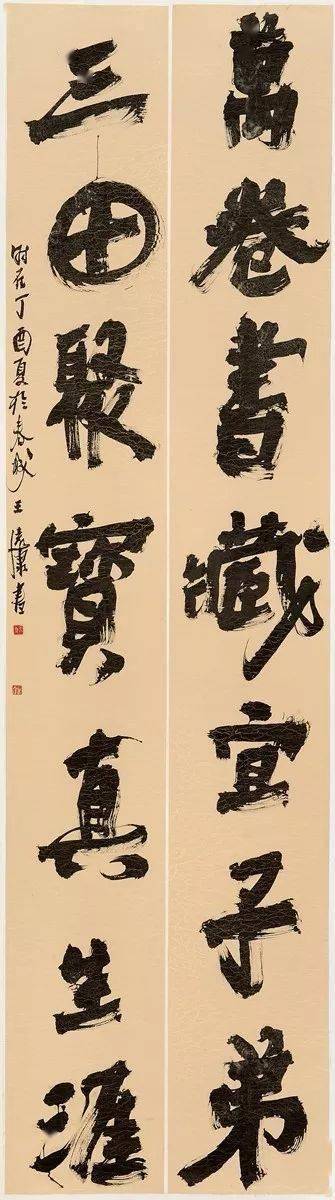 萬卷書藏宜子弟
三田聚寶真生涯
时在丁酉夏於春城王書